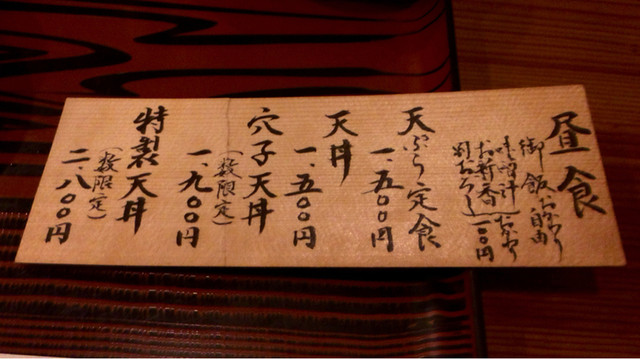 昼食
御飯おかわり自由
味噌汁
お新香
おかわり
別おろし
一〇〇円
天ぷら定食
一、五〇〇円
天丼
一、五〇〇円
穴子天丼
(数限定)
一、九〇〇円
特製天丼
(数限定)
二、八〇〇円